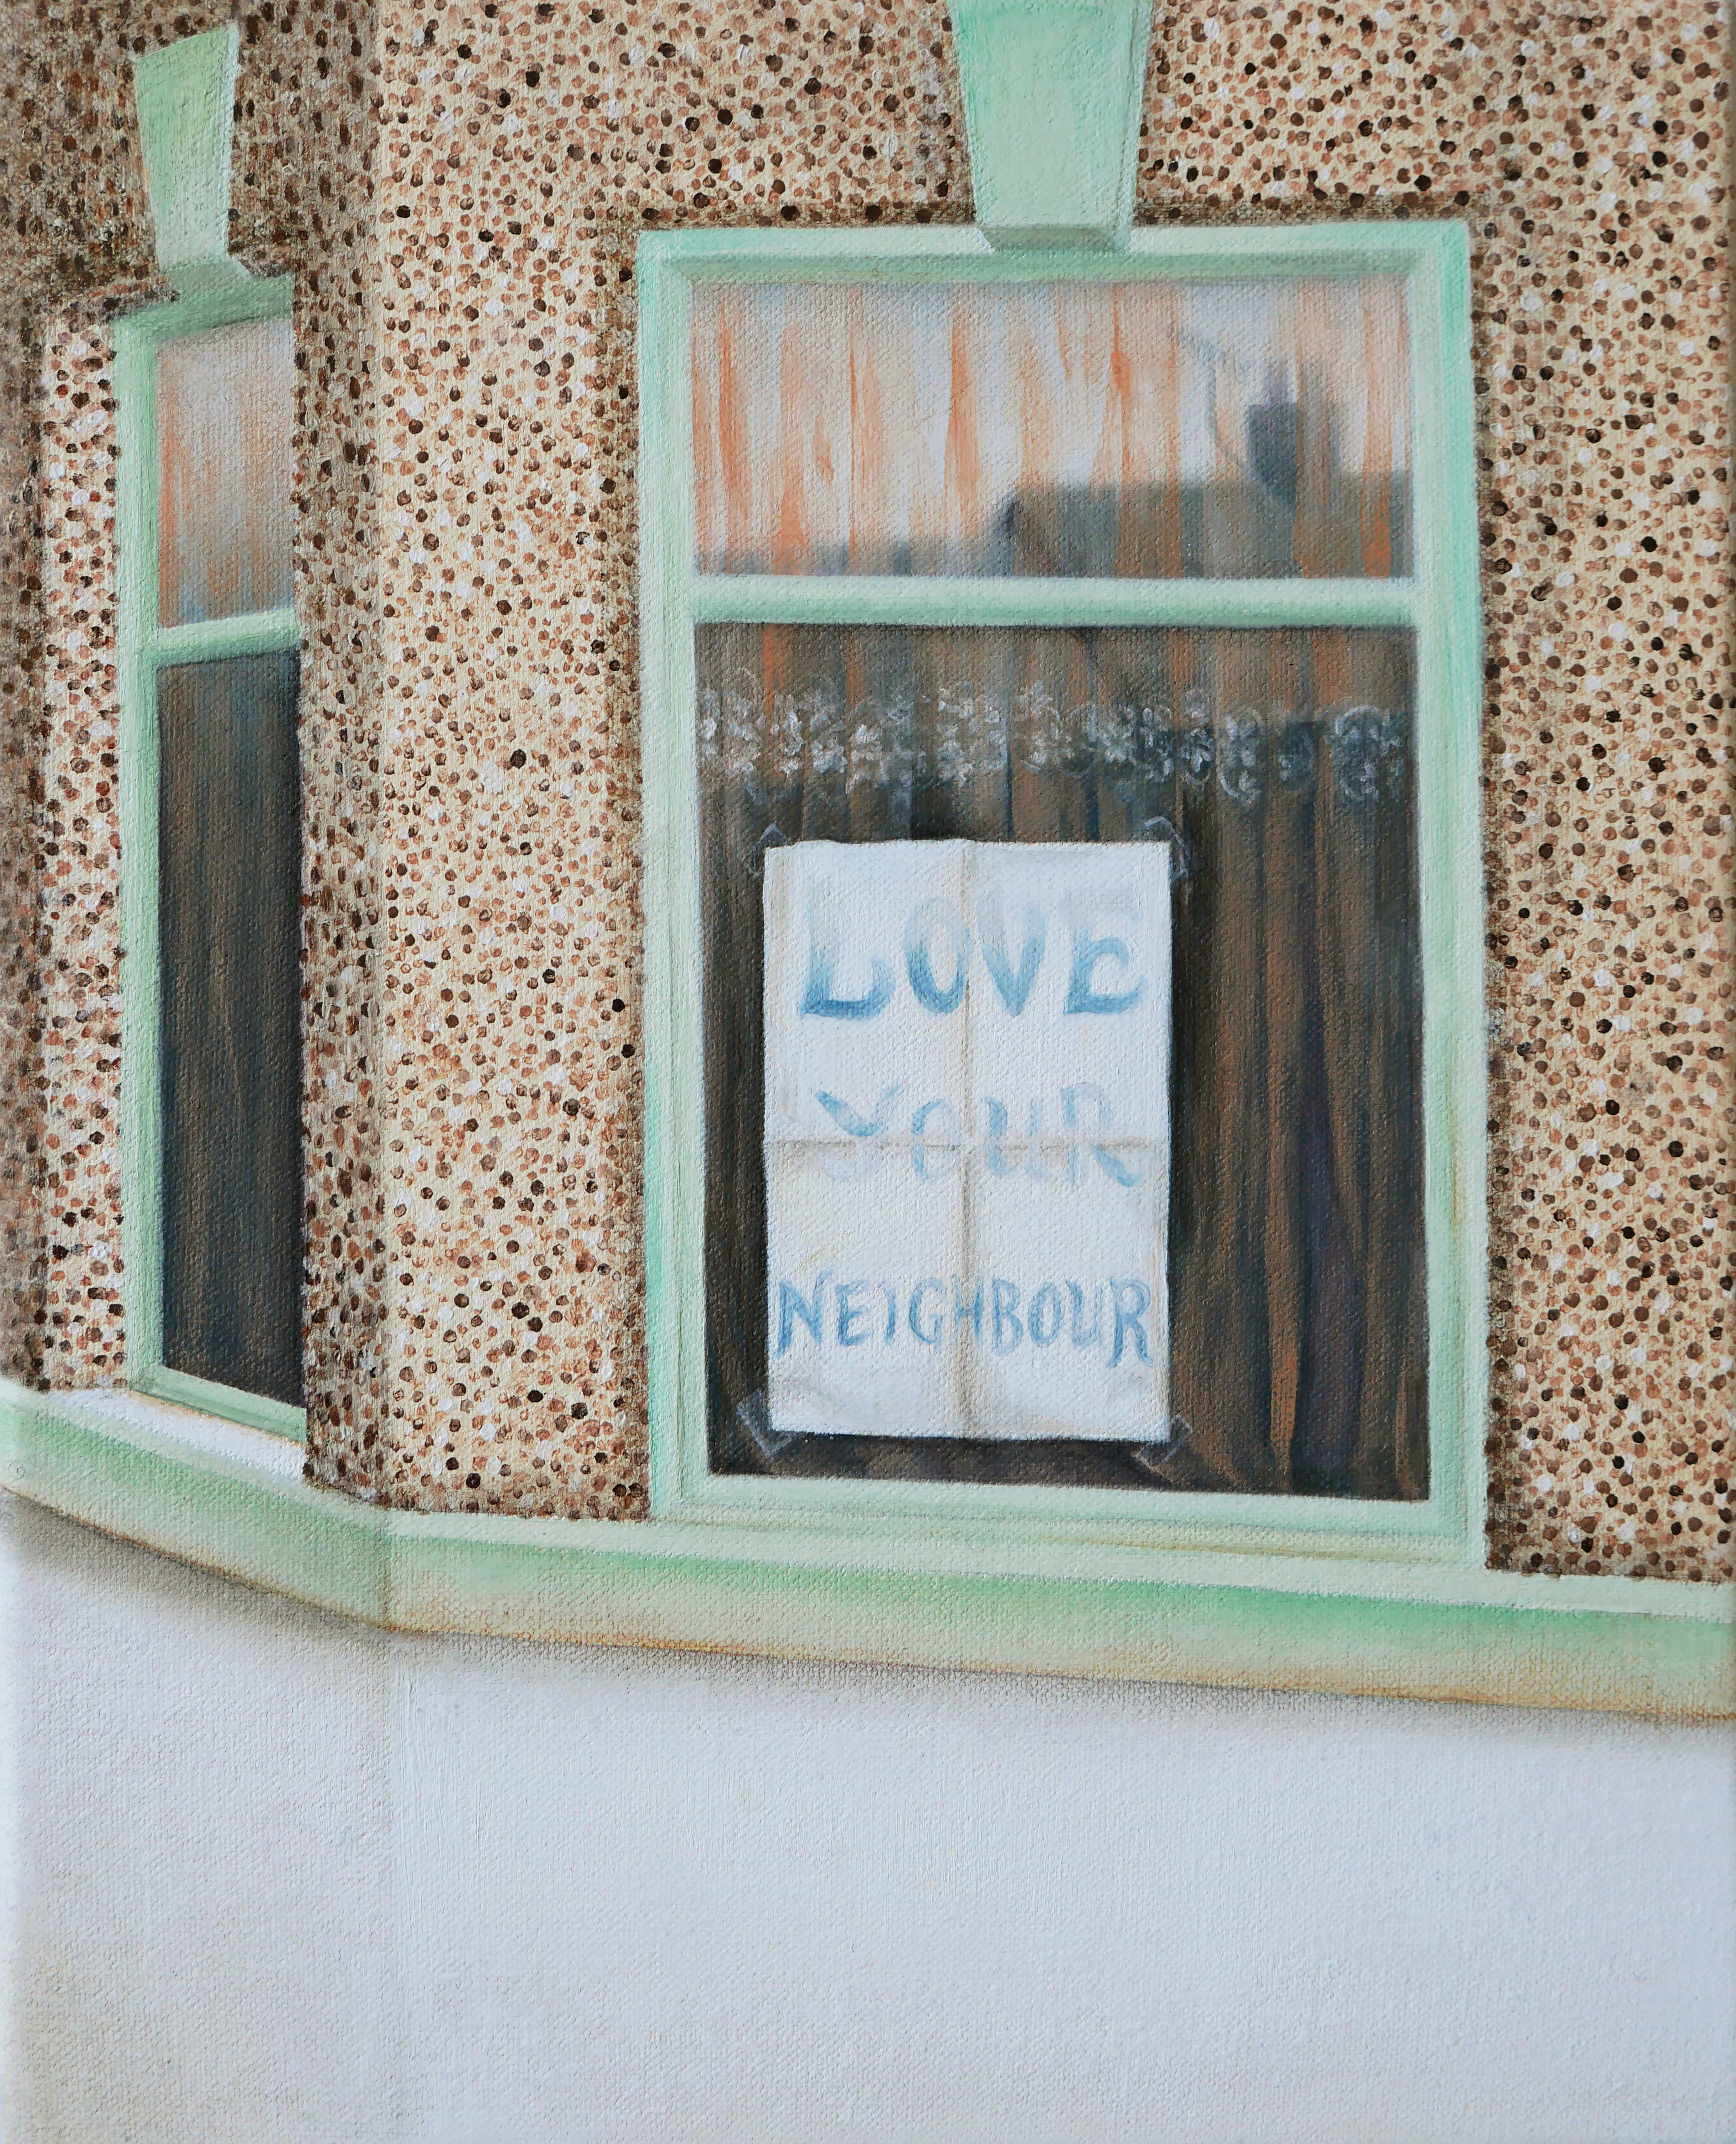 LOVE
YOUR
NEIGHBOUR